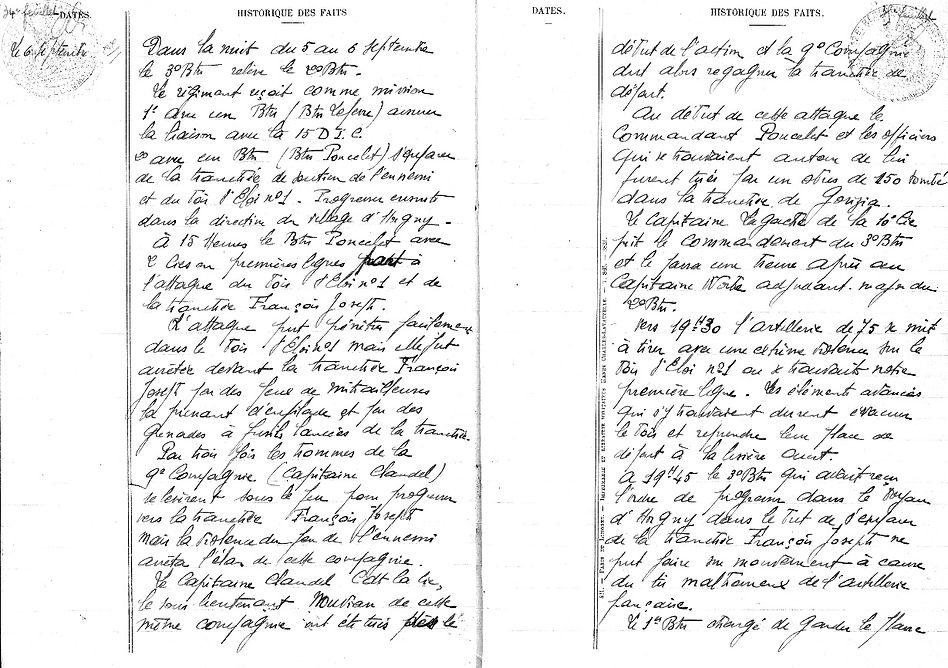 34e feuillet
DATES.
HISTORIQUE DES FAITS
le 6 septembre
Dans la nuit du 5 au 6 septembre
le 3e Btn relève le 2e Btn.
Le régiment reçoit comme mission
1° avec un Btn (Btn Lefevre) assurer
la liaison avec la 15 D.I.C.
2° avec un Btn (Btn Poncelet) s'emparer
de la tranchée de soutien de l'ennemi
et du bois d'Eloi n°1. Progresser ensuite
dans la direction du village d'Horgny.
à 15 heures le Btn Poncelet avec
2 Cies en premières lignes part à
l'attaque du bois d'Eloi n°1 et de
la tranchée François Joseph.
L'attaque put pénétrer facilement
dans le bois d'Eloi n°1 mais elle fut
arrêtée devant la tranchée François
Joseph par des feux de mitrailleuses
la prenant d'enfilade et par des
grenades à fusils lancées de la tranchée.
Par trois fois les hommes de la
9e Compagnie (Capitaine Claudel)
se levèrent sous le feu pour progresser
vers la tranchée François Joseph
mais la violence du feu de l'ennemi
arrêta l'élan de cette compagnie.
Le Capitaine Claudel Cdt la Cie,
le sous lieutenant de cette
même compagnie ont été tués dès le
DATES.
HISTORIQUE DES FAITS.
feuillet
début de l'action et la 9e Compagnie
dut alors regagner la tranchée de
départ.
Au début de cette attaque le
Commandant Poncelet et les officiers
qui se trouvaient autour de lui
furent tués par un obus de 150 tombé
dans la tranchée de Gorizia.
Le Capitaine Lagache de la 10e Cie
prit le commandement du 3e Btn
et le passa une heure après au
Capitaine adjudant-major du
2e Btn.
Vers 19H30 l'artillerie de 75 se mit
à tirer avec une extrême violence sur le
bois d'Eloi n°1 où se trouvait notre
première ligne. Les éléments avancés
qui s'y trouvaient durent évacuer
le bois et reprendre leur place de
départ à la lisière ouest.
A 19H45 le 3e Btn qui avait reçu
l'ordre de progresser dans le boyau
d'Horgny dans le but de s'emparer
de la tranchée François Joseph ne
put faire son mouvement à cause
du tir malheureux de l'artillerie
française.
Le 1er Btn chargé de garder la place